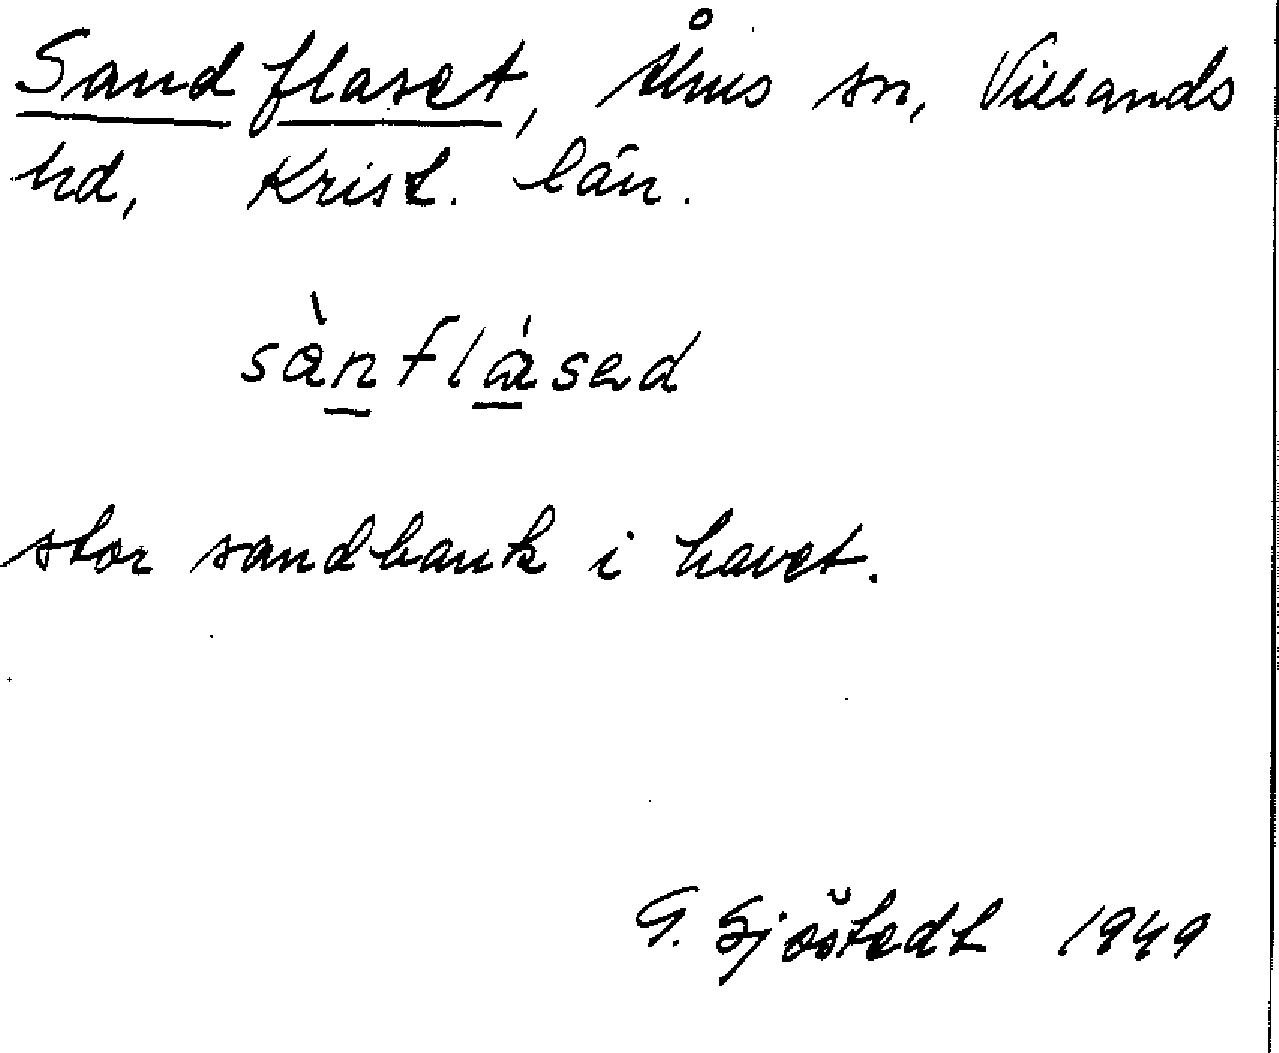 Sandflaset, Åhus sn, Villands
hd, Krist. län.
sànflásed
stor sandbank i havet.
G. Sjöstedt 1949